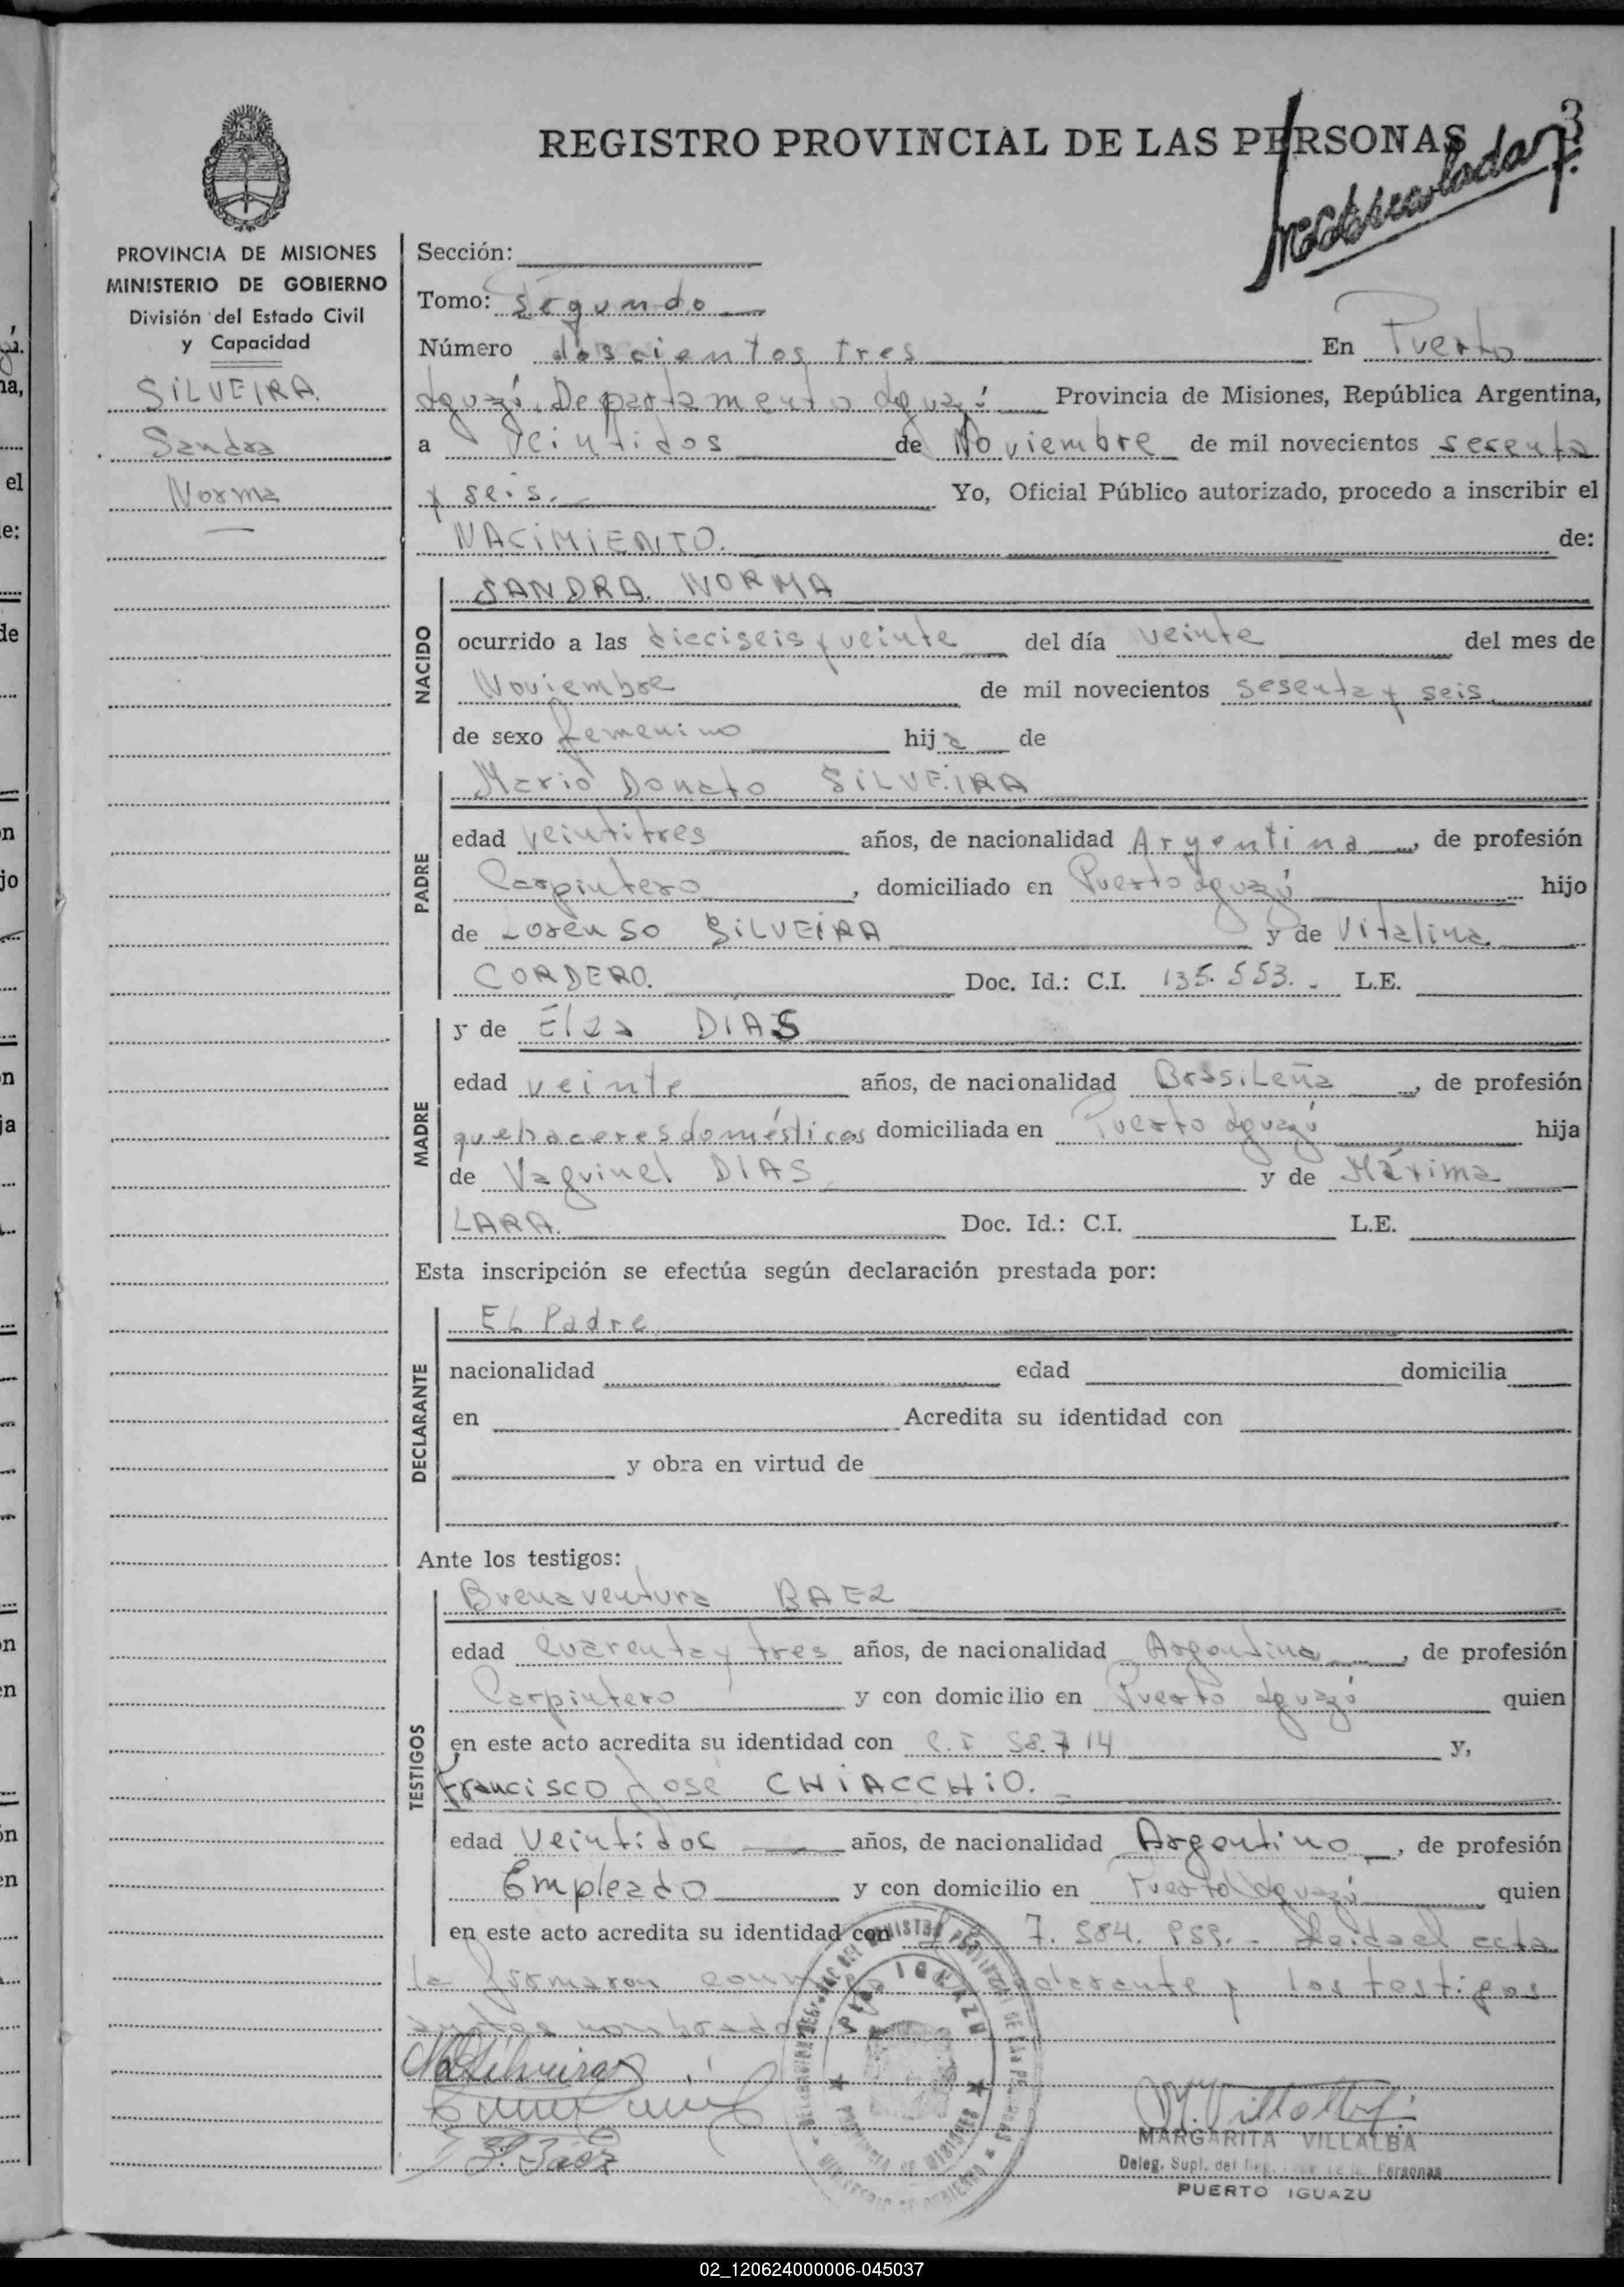 3
REGISTRO PROVINCIAL DE LAS PERSONAS
PROVINCIA DE MISIONES
MINISTERIO DE GOBIERNO
División del Estado Civil
y Capacidad
SILVEIRA.
Sandra
Norma
Sección:
Tomo: Segundo
Número doscientos tres En Puerto
Iguazú. Departamento Iguazú Provincia de Misiones, República Argentina,
a veintidos de Noviembre de mil novecientos sesenta
y seis. Yo, Oficial Público autorizado, procedo a inscribir el
NACIMIENTO. de:
NACIDO
SANDRA. NORMA
ocurrido a las dieciseis y veinte del día veinte del mes de
Noviembre de mil novecientos sesenta y seis
de sexo femenino hija de
PADRE
Mario Donato SILVEIRA
edad veintitres años, de nacionalidad Argentina, de profesión
Carpintero, domiciliado en Puerto Iguazú hijo
de Lorenso SILVEIRA y de Vitalina
CORDERO. Doc. Id.: C.I. 135.553. L.E.
MADRE
y de Elsa DIAS
edad veinte años, de nacionalidad Brasileña, de profesión
quehaceres domésticos domiciliada en Puerto Iguazú hija
de DIAS y de Máxima
LARA. Doc. Id.: C.I. L.E.
Esta inscripción se efectúa según declaración prestada por:
DECLARANTE
EL Padre
nacionalidad edad domicilia
en Acredita su identidad con
y obra en virtud de
Ante los testigos:
TESTIGOS
Buenaventura BAEZ
edad cuarenta y tres años, de nacionalidad Argentina, de profesión
Carpintero y con domicilio en Puerto Iguazú quien
en este acto acredita su identidad con C.I 58.714 y,
Francisco José CHIACCHIO.
edad veintidos años, de nacionalidad Argentino, de profesión
Empleado y con domicilio en Puerto Iguazú quien
en este acto acredita su identidad con 7.584. Leida el acta
la firmaron conmigo declarante y los testigos
antes nombrados
MARGARITA VILLALBA
Deleg. Supl. del Reg. Prov. de las Personas
PUERTO IGUAZU
02_120624000006-045037